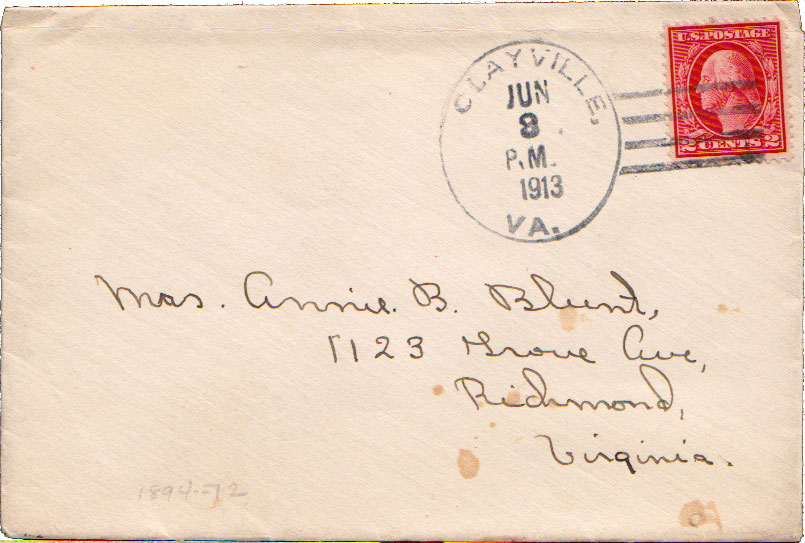 CLAYVILLE,
JUN
3
P.M.
1913
VA.
U.S. POSTAGE
2 CENTS 2
Mrs. Annie. B. Blunt,
1123 Grove Ave,
Richmond,
Virginia.
1894-72